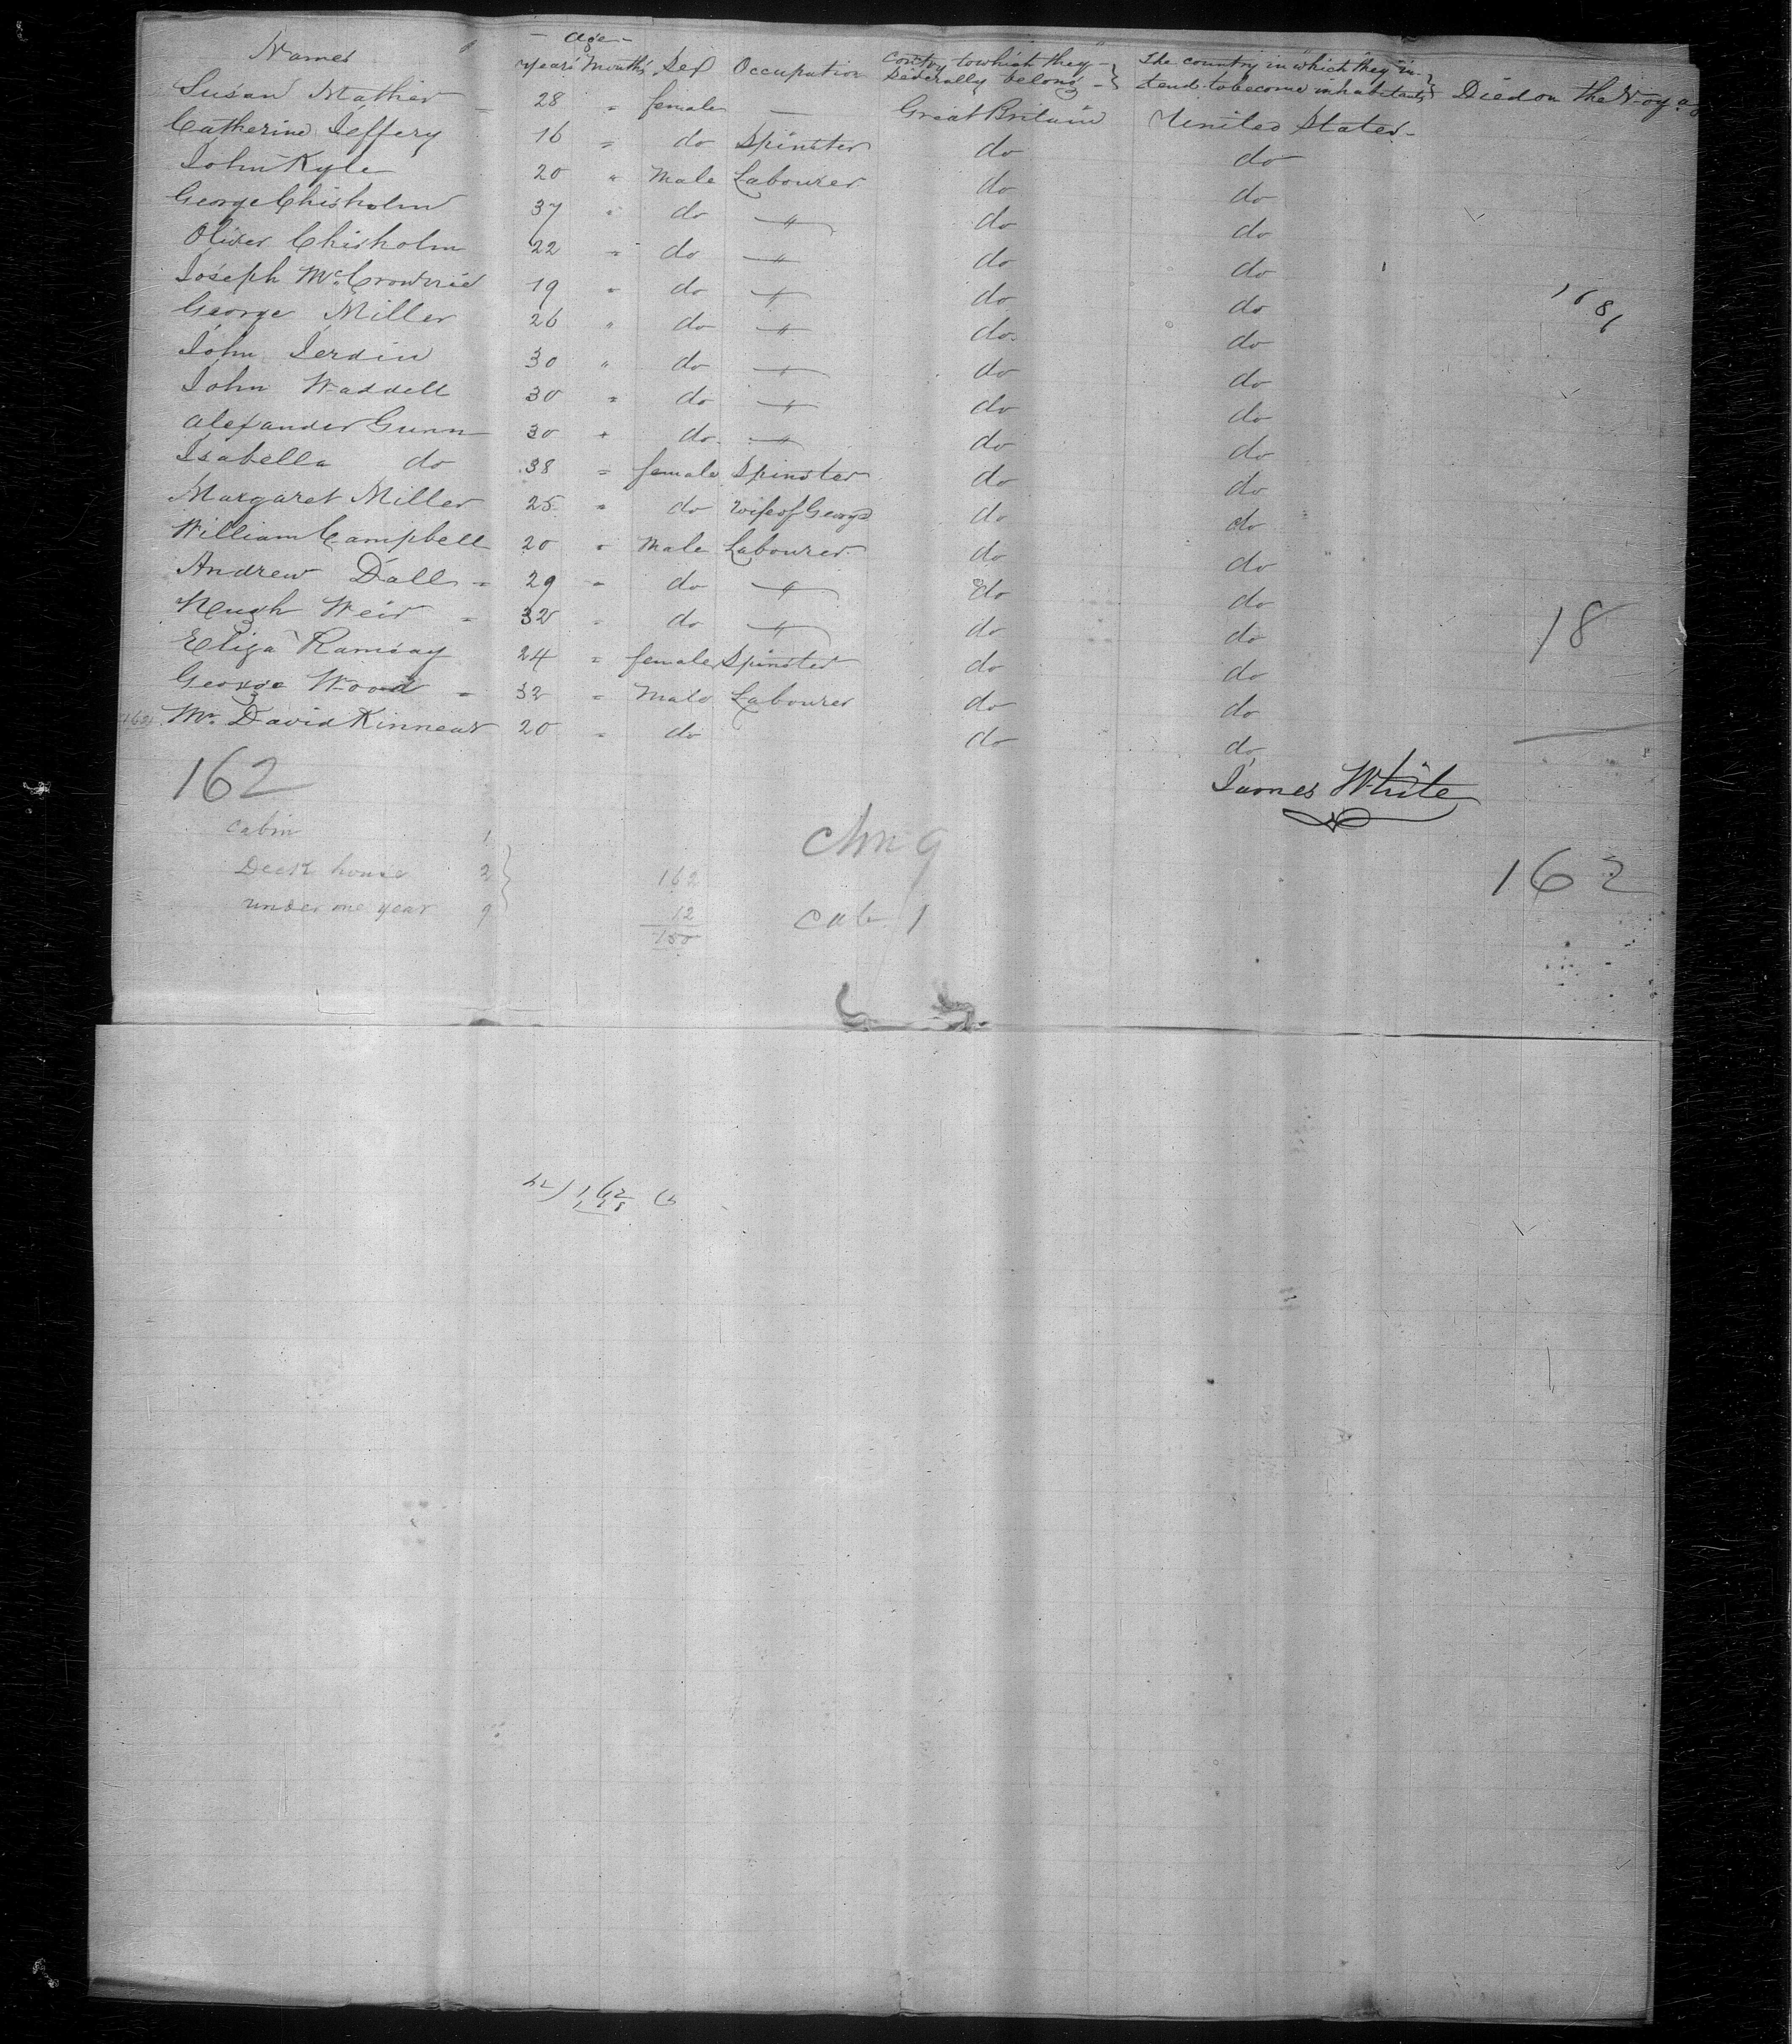 Names - age - years Months Sex Occupation Contry to which they Severally belong The country in which they in-tend to become inhabitants Died on the Voyage
Susan Mather 28 " female — Great Britain United States
Catherine Jeffery 16 " do Spinster do do
John Kyle 20 " Male Labourer do do
George Chisholm 37 " do " do do
Oliver Chisholm 22 " do " do do
Joseph 19 " do " do do
George Miller 26 " do " do do
John Jerdin 30 " do " do do
John Waddell 30 " do " do do
Alexander Gunn 30 " do " do do
Isabella do 38 " female Spinster do do
Margaret Miller 25 " do wife of George do do
William Campbell 20 " Male Labourer do do
Andrew Dall 29 " do " do do
Hugh Weir 32 " do " do do
18
Eliza Ramsay 24 " female Spinster do do
George Wood 32 " Male Labourer do do
162 Mr. David Kinnear 20 " do do do
162
James White
cabin 1
Deck house 2
under one year 9
162
12
150
chn 9
cab 1
162